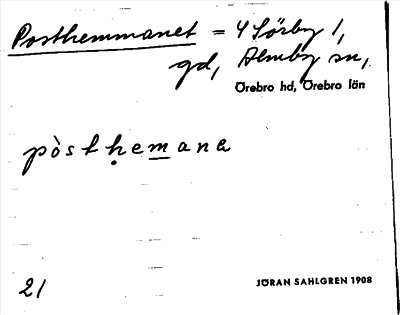 Posthemmanet = 4 Sörby 1,
gd, Almby sn,
Örebro hd, Örebro län
pòstḥemana
21
JÖRAN SAHLGREN 1908